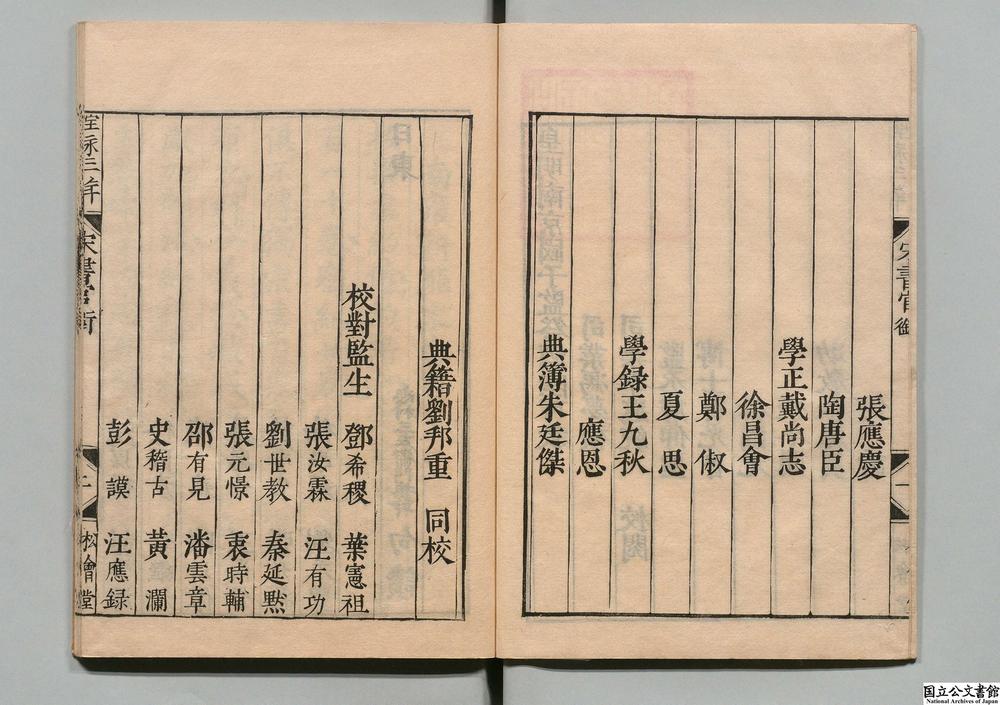 張應慶
陶唐臣
學正戴尚志
徐昌會
鄭俶
夏思
學録王九秋
應恩
典簿朱廷傑
宋書官銜
典籍劉邦重 同校
校對監生 鄧希稷 葉憲祖
張汝霖 汪有功
劉世教 秦延默
張元憬 袠時輔
邵有見 潘雲章
史稽古 黃瀾
彭謨 汪應録
宝永三年 宋書官銜 二 松會堂
国立公文書館
National Archives of Japan